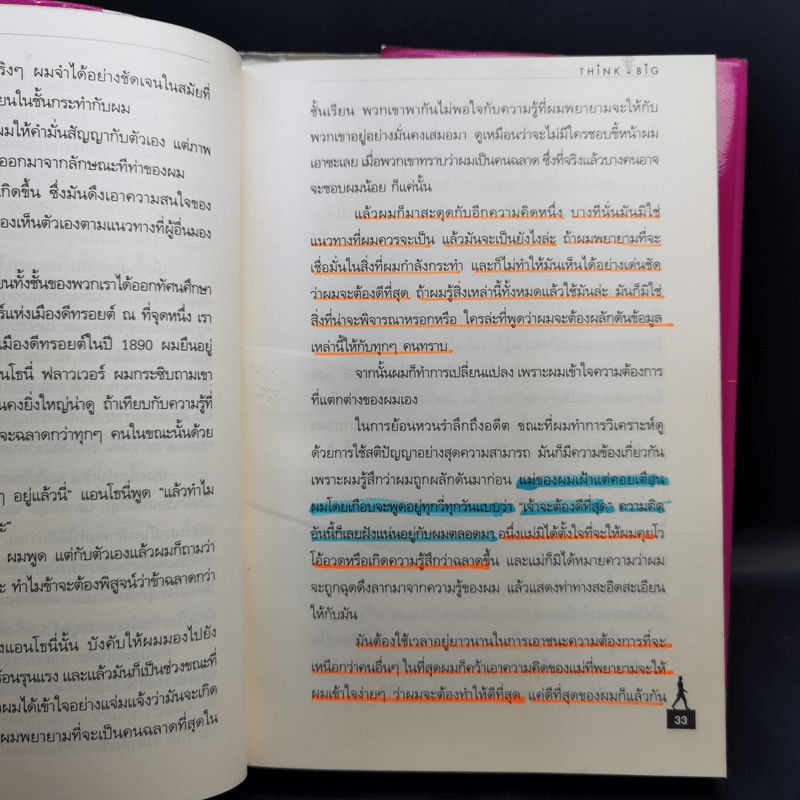 ริงๆ ผมจำได้อย่างชัดเจนในสมัยที่
ยนในชั้นกระทำกับผม
ผมให้คำมั่นสัญญากับตัวเอง แต่ภาพ
ออกมาจากลักษณะทีท่าของผม
เกิดขึ้น ซึ่งมันดึงเอาความสนใจของ
องเห็นตัวเองตามแนวทางที่ผู้อื่นมอง
ยนทั้งชั้นของพวกเราได้ออกทัศนศึกษา
ร์แห่งเมืองดีทรอยต์ ณ ที่จุดหนึ่ง เรา
เมืองดีทรอยต์ในปี 1890 ผมยืนอยู่
นโธนี่ ฟลาวเวอร์ ผมกระซิบถามเขา
นคงยิ่งใหญ่น่าดู ถ้าเทียบกับความรู้ที่
จะฉลาดกว่าทุกๆ คนในขณะนั้นด้วย
ๆ อยู่แล้วนี่" แอนโธนี่พูด "แล้วทำไม
ะ"
ผมพูด แต่กับตัวเองแล้วผมก็ถามว่า
ะ ทำไมข้าจะต้องพิสูจน์ว่าข้าฉลาดกว่า
งแอนโธนี่นั้น บังคับให้ผมมองไปยัง
ร้อนรุนแรง และแล้วมันก็เป็นช่วงขณะที่
าผมได้เข้าใจอย่างแจ่มแจ้งว่ามันจะเกิด
ผมพยายามที่จะเป็นคนฉลาดที่สุดใน
THINK BIG
ชั้นเรียน พวกเขาพากันไม่พอใจกับความรู้ที่ผมพยายามจะให้กับ
พวกเขาอยู่อย่างมั่นคงเสมอมา ดูเหมือนว่าจะไม่มีใครชอบขี้หน้าผม
เอาซะเลย เมื่อพวกเขาทราบว่าผมเป็นคนฉลาด ซึ่งที่จริงแล้วบางคนอาจ
จะชอบผมน้อย ก็แค่นั้น
แล้วผมก็มาสะดุดกับอีกความคิดหนึ่ง บางทีนั่นมันมิใช่
แนวทางที่ผมควรจะเป็น แล้วมันจะเป็นยังไงล่ะ ถ้าผมพยายามที่จะ
เชื่อมั่นในสิ่งที่ผมกำลังกระทำ และก็ไม่ทำให้มันเห็นได้อย่างเด่นชัด
ว่าผมจะต้องดีที่สุด ถ้าผมรู้สิ่งเหล่านี้ทั้งหมดแล้วใช้มันล่ะ มันก็มิใช่
สิ่งที่น่าจะพิจารณาหรอกหรือ ใครล่ะที่พูดว่าผมจะต้องผลักดันข้อมูล
เหล่านี้ให้กับทุกๆ คนทราบ
จากนั้นผมก็ทำการเปลี่ยนแปลง เพราะผมเข้าใจความต้องการ
ที่แตกต่างของผมเอง
ในการย้อนหวนรำลึกถึงอดีต ขณะที่ผมทำการวิเคราะห์ดู
ด้วยการใช้สติปัญญาอย่างสุดความสามารถ มันก็มีความข้องเกี่ยวกัน
เพราะผมรู้สึกว่าผมถูกผลักดันมาก่อน แม่ของผมเฝ้าแต่คอยเตือน
ผมโดยเกือบจะพูดอยู่ทุกวี่ทุกวันแบบว่า "เจ้าจะต้องดีที่สุด" ความคิด
อันนี้ก็เลยฝังแน่นอยู่กับผมตลอดมา อนึ่งแม่มิได้ตั้งใจที่จะให้ผมคุยโว
โอ้อวดหรือเกิดความรู้สึกว่าฉลาดขึ้น และแม่ก็มิได้หมายความว่าผม
จะถูกฉุดดึงลากมาจากความรู้ของผม แล้วแสดงท่าทางสะอิดสะเอียน
ให้กับมัน
มันต้องใช้เวลาอยู่ยาวนานในการเอาชนะความต้องการที่จะ
เหนือกว่าคนอื่นๆ ในที่สุดผมก็คว้าเอาความคิดของแม่ที่พยายามจะให้
ผมเข้าใจง่ายๆ ว่าผมจะต้องทำให้ดีที่สุด แค่ดีที่สุดของผมก็แล้วกัน
33